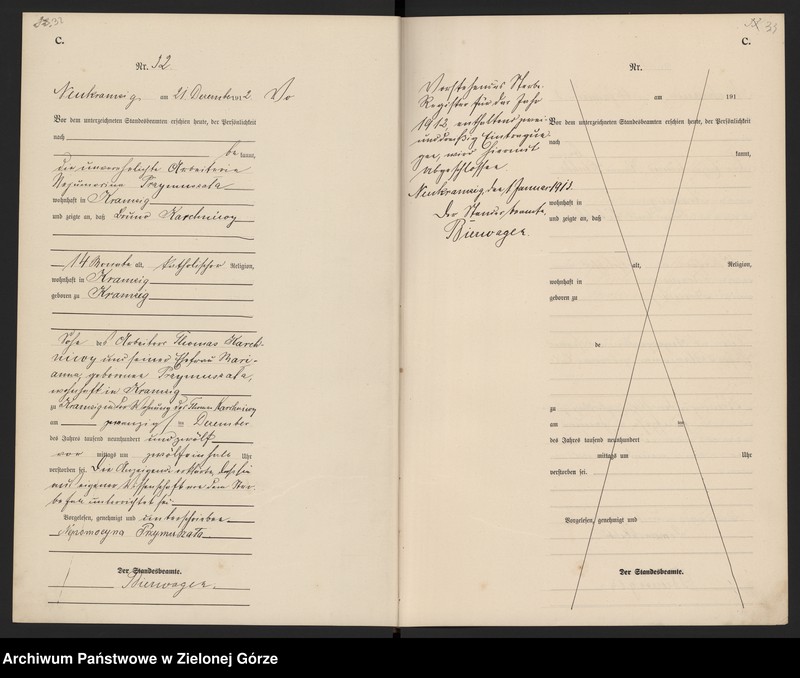 33
C.
Nr. 32
Neukramzig, am 21. Dezember 1912.
Vor dem unterzeichneten Standesbeamten erschien heute, der Persönlichkeit
nach
be kannt,
die unverehelichte Arbeiterin
Nepomucena Przymuszala
wohnhaft in Kramzig
und zeigte an, daß Bruno
14 Monate alt, katholischer Religion,
wohnhaft in Kramzig
geboren zu Kramzig
Sohn des Arbeiters Thomas
und seiner Ehefrau Mari-
anna, geborenen Przymuszala,
wohnhaft in Kramzig
zu Kramzig in der Wohnung des Thomas
am zwanzig ten Dezember
des Jahres tausend neunhundert und zwölf
vor mittags um zwölfeinhalb Uhr
verstorben sei. Die Anzeigende erklärte, daß sie
aus eigener Wissenschaft von dem Ster-
befall unterrichtet sei.
Vorgelesen, genehmigt und unterschrieben
Nepomocyna Przymuszala
Der Standesbeamte.
Bierwagen.
C.
Vorstehendes Sterbe-
Register für das Jahr
1912 enthaltend zwei-
unddreißig Eintragun-
gen, wird hiermit
abgeschlossen
Neukramzig, den 1. Januar 1913.
Der Standesbeamte.
Bierwagen.
Nr.
am 191
Vor dem unterzeichneten Standesbeamten erschien heute, der Persönlichkeit
nach
kannt,
wohnhaft in
und zeigte an, daß
alt, Religion,
wohnhaft in
geboren zu
be
zu
am ten
des Jahres tausend neunhundert
mittags um Uhr
verstorben sei.
Vorgelesen, genehmigt und
Der Standesbeamte.
Archiwum Państwowe w Zielonej Górze